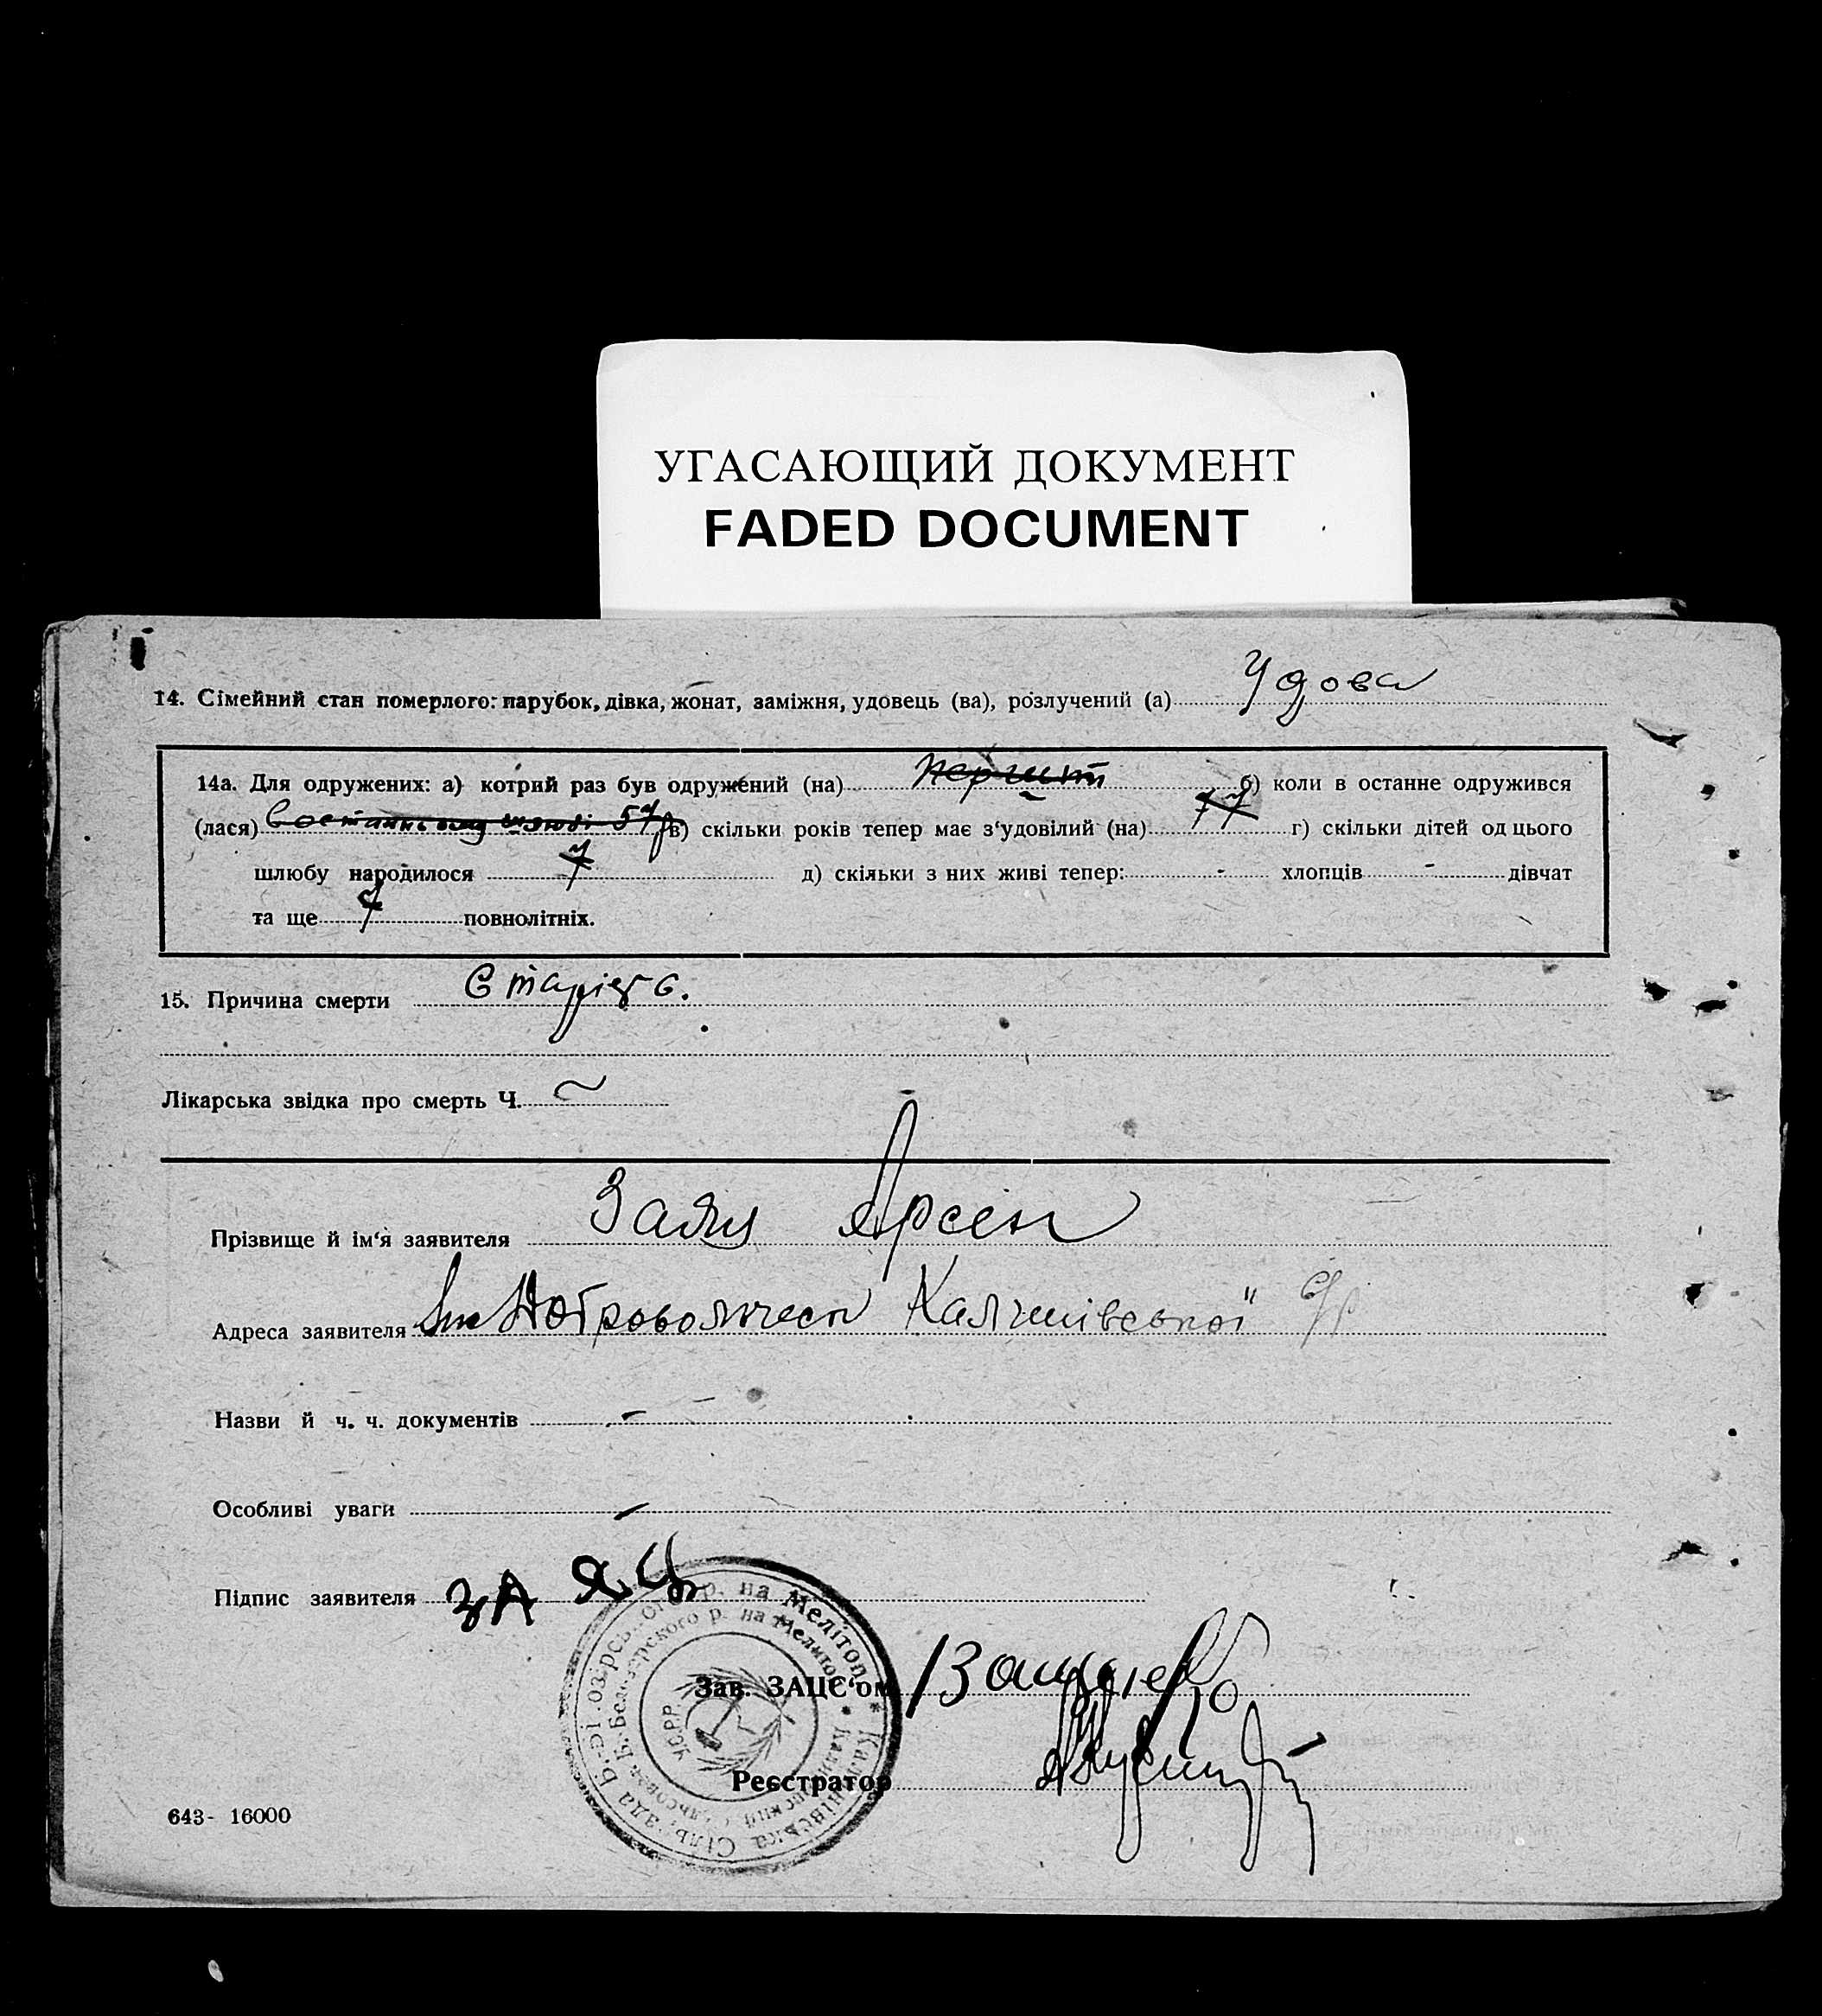 УГАСАЮЩИЙ ДОКУМЕНТ
FADED DOCUMENT
14. Сімейний стан померлого: парубок, дівка, жонат, заміжня, удовець (ва), розлучений (а) Удова
14а. Для одружених: а) котрий раз був одружений (на) б) коли в останне одружився
(лася) в останньому шлюбі 57 р в) скільки років тепер має з'удовілий (на) 77 г) скільки дітей од цього
шлюбу народилося 7 д) скільки з них живі тепер: - хлопців - дівчат
та ще 7 повнолітніх.
15. Причина смерти Старість.
Лікарська звідка про смерть Ч. ~
Прізвище й ім'я заявителя Заяц Арсен
Адреса заявителя Калинівської с/р
Назви й ч. ч. документів -
Особливі уваги -
Підпис заявителя ЗА ЯЦ
Зав. ЗАЦС'ом
Реєстратор
643- 16000